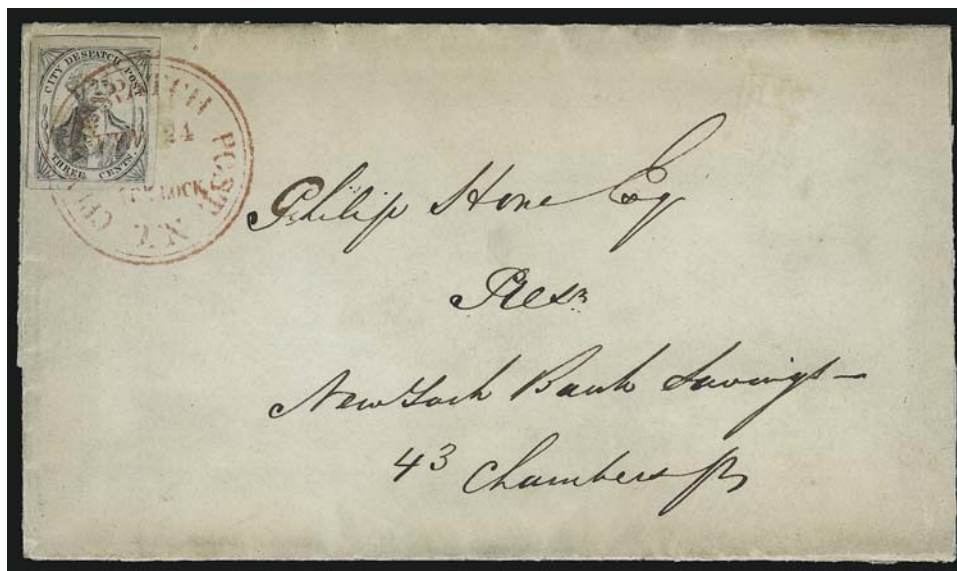 CITY DESPATCH POST
THREE CENTS.
CITY DESPATCH POST
24
O'CLOCK
N.Y.
Philip Hone Esq
Pres
New York Bank Savings
43 Chambers St